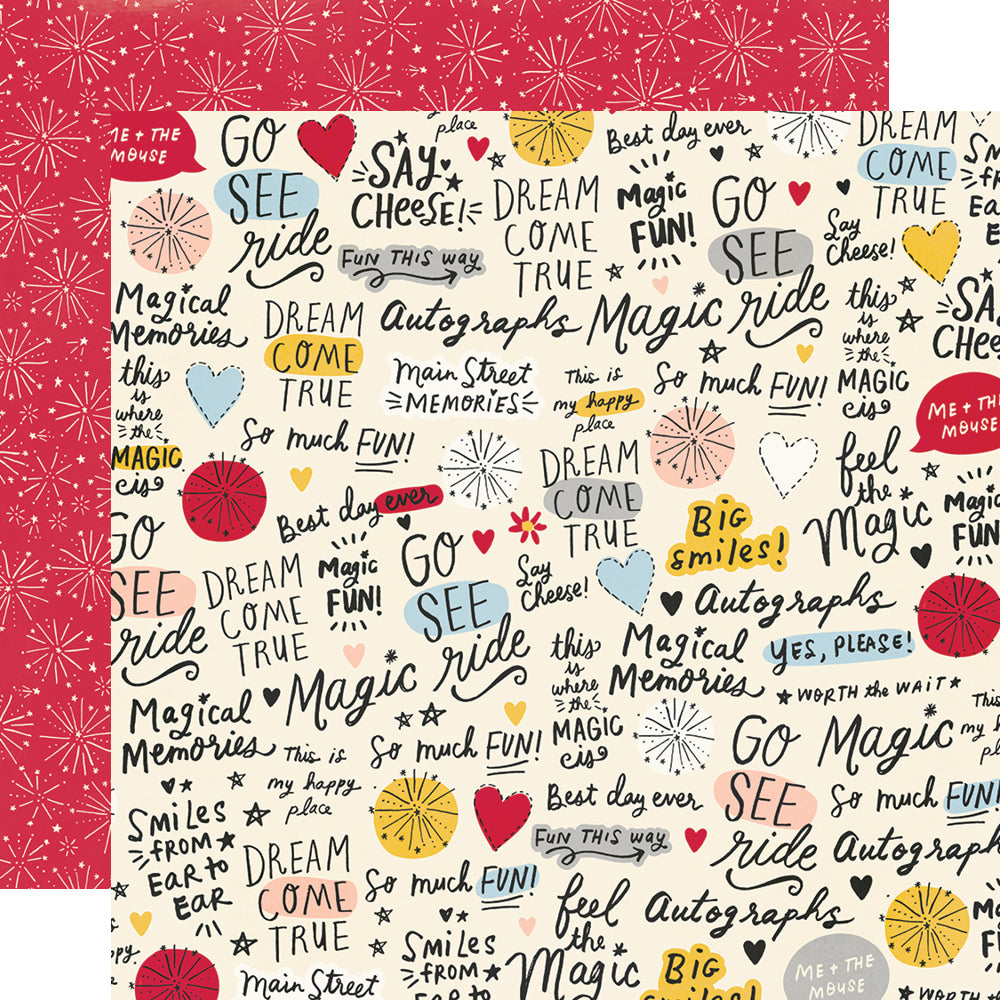 ME + THE
MOUSE
GO
SEE
ride
SAY
CHEESE!
place
Best day ever
DREAM
COME
TRUE
FUN THIS way
DREAM
COME
TRUE
Magic
FUN!
GO
SEE
ride
Say
Cheese!
Magical
Memories
DREAM
COME
TRUE
Autographs
Magic
this
is
where
the
MAGIC
is
SAY
CHEE
this
is
where
the
MAGIC
is
Main Street
MEMORIES
This is
my happy
place
So much FUN!
ME + THE
MOUSE
So much FUN!
DREAM
COME
TRUE
feel
the
Magic
Best day ever
BIG
smiles!
Magic
FUN
GO
SEE
ride
DREAM
COME
TRUE
Magic
FUN!
GO
SEE
ride
Say
Cheese!
Autographs
Magic
this
is
where
the
MAGIC
is
Magical
Memories
YES, PLEASE!
WORTH the WAIT
Magical
Memories
This is
my happy
place
So much FUN!
GO
SEE
ride
Magic
This
my
pl
Best day ever
So much FUN!
SMILES
FROM
EAR to
EAR
DREAM
COME
TRUE
FUN THIS way
Autograph
So much FUN!
feel
the
Magic
Autographs
SMILES
FROM
Main Street
BIG
smiles!
ME + THE
MOUSE
WORTH th